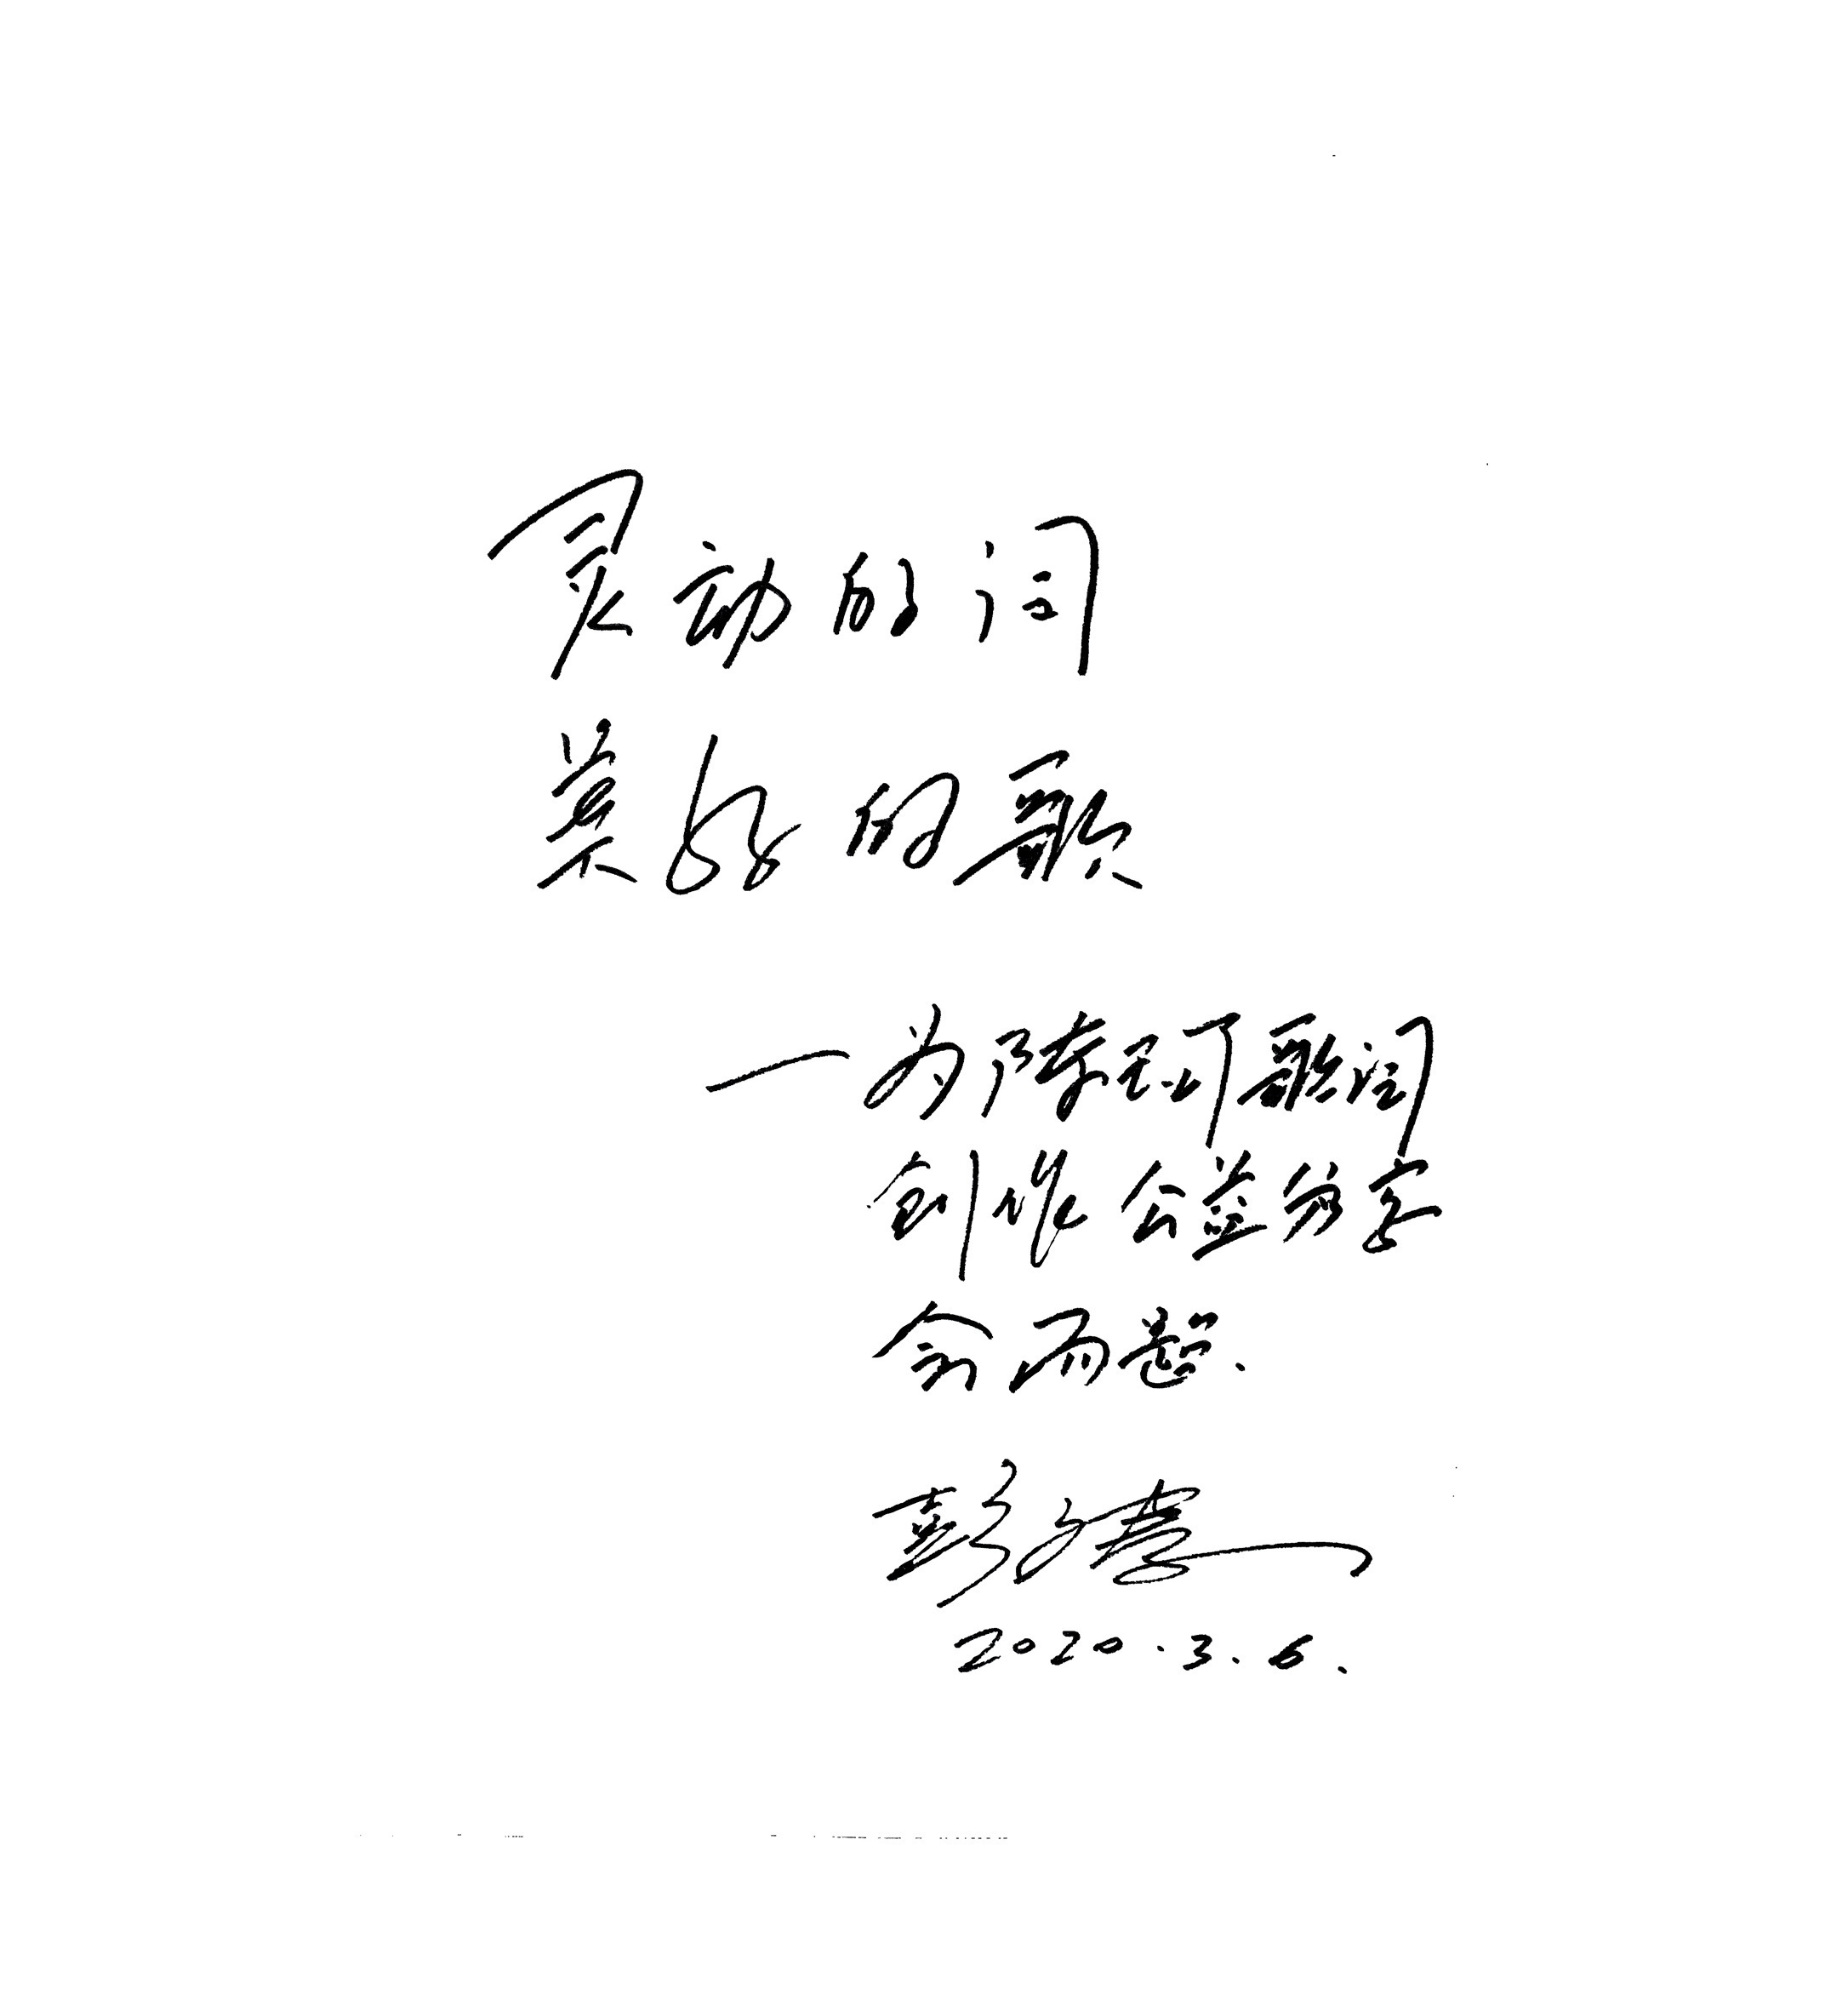 灵动的词
美好的歌
——为陈砚歌词
创作公益分享
会而题.
2020.3.6.